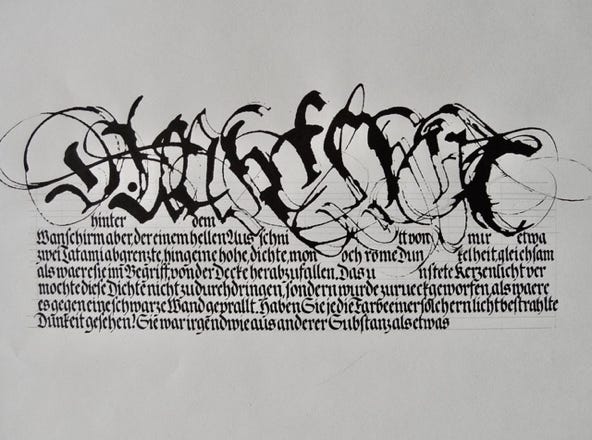 hinter dem
Wanschirm aber der einem hellen Aus schni tt von mir etwa
zwei Tatami abgrenzte, hing eine hohe, dichte, mon och rome Dun kelheit, gleichsam
als waere sie im Begriff, von der Decke herabzufallen. Das u nstete Kerzenlicht ver
mochte diese Dichte nicht zu durchdringen, sondern wurde zurueckgeworfen, als waere
es gegen eine schwarze Wand geprallt. Haben Sie je die Farbe einer solchern licht bestrahlte
Dunkeit gesehen? Sie war irgendwie aus anderer Substanz als etwas